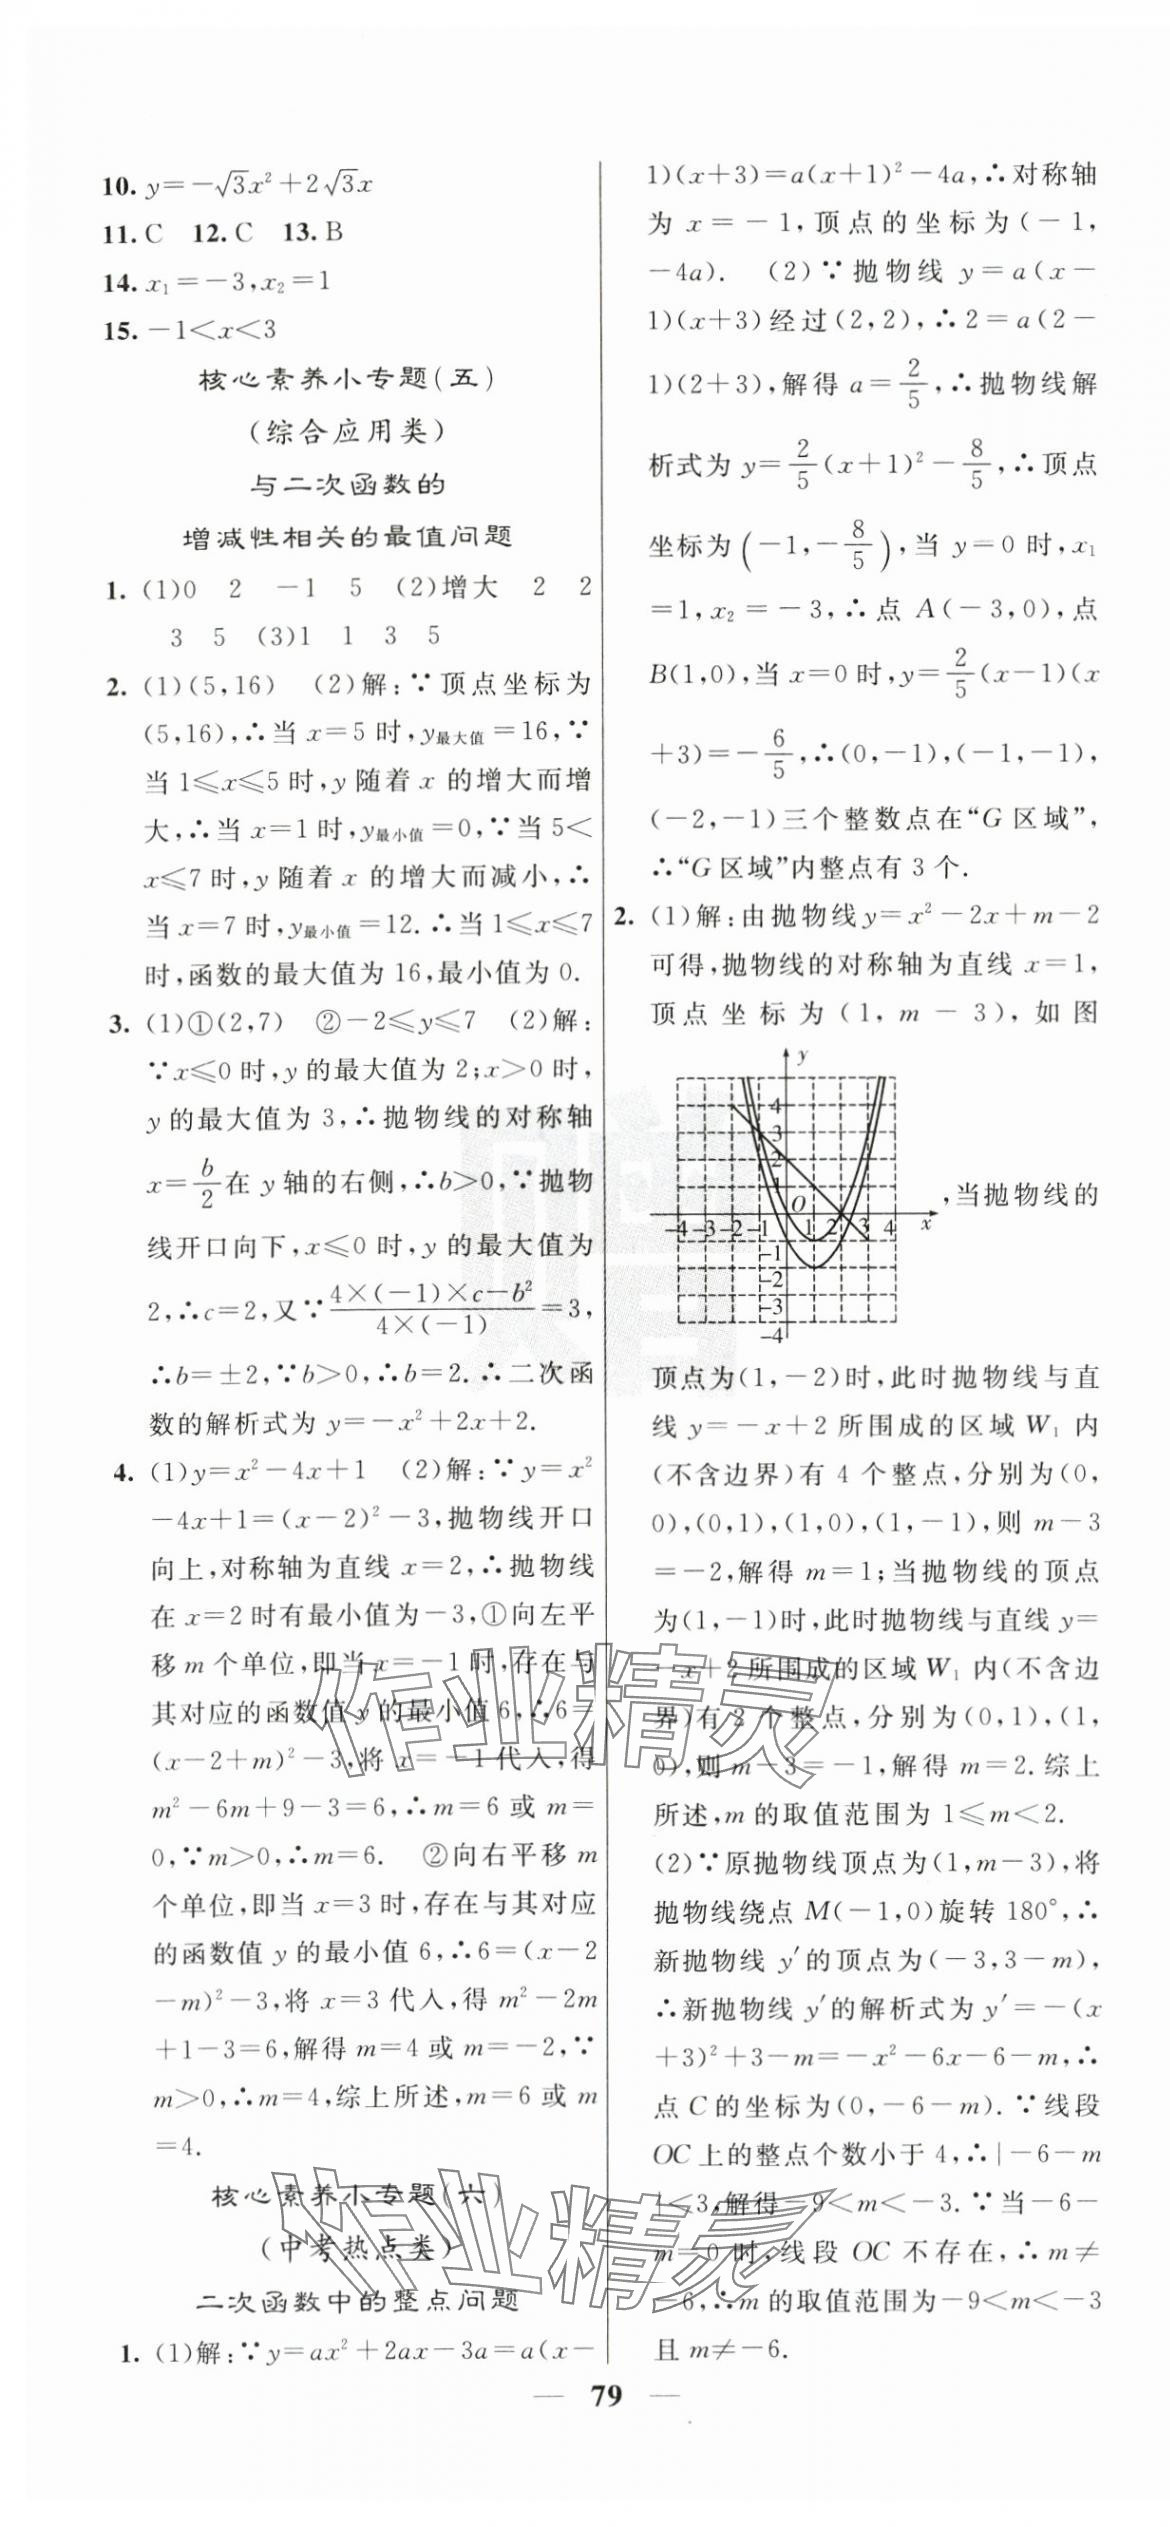 10. y=-√3x²+2√3x
11. C 12. C 13. B
14. x₁=-3,x₂=1
15. -1<x<3
核心素养小专题(五)
(综合应用类)
与二次函数的
增减性相关的最值问题
1. (1)0 2 -1 5 (2)增大 2 2
3 5 (3)1 1 3 5
2. (1)(5,16) (2)解:∵顶点坐标为
(5,16),∴当 x=5 时,y最大值=16,∵
当 1≤x≤5 时,y 随着 x 的增大而增
大,∴当 x=1 时,y最小值=0,∵当 5<
x≤7 时,y 随着 x 的增大而减小,∴
当 x=7 时,y最小值=12.∴当 1≤x≤7
时,函数的最大值为 16,最小值为 0.
3. (1)①(2,7) ②-2≤y≤7 (2)解:
∵x≤0 时,y 的最大值为 2;x>0 时,
y 的最大值为 3,∴抛物线的对称轴
x=b/2在 y 轴的右侧,∴b>0,∵抛物
线开口向下,x≤0 时,y 的最大值为
2,∴c=2,又∵(4×(-1)×c-b²)/(4×(-1))=3,
∴b=±2,∵b>0,∴b=2.∴二次函
数的解析式为 y=-x²+2x+2.
4. (1)y=x²-4x+1 (2)解:∵y=x²
-4x+1=(x-2)²-3,抛物线开口
向上,对称轴为直线 x=2,∴抛物线
在 x=2 时有最小值为-3,①向左平
移 m 个单位,即当 x=-1 时,存在与
其对应的函数值 y 的最小值 6,∴6=
(x-2+m)²-3,将 x=-1 代入,得
m²-6m+9-3=6,∴m=6 或 m=
0,∵m>0,∴m=6. ②向右平移 m
个单位,即当 x=3 时,存在与其对应
的函数值 y 的最小值 6,∴6=(x-2
-m)²-3,将 x=3 代入,得 m²-2m
+1-3=6,解得 m=4 或 m=-2,∵
m>0,∴m=4,综上所述,m=6 或 m
=4.
核心素养小专题(六)
(中考热点类)
二次函数中的整点问题
1. (1)解:∵y=ax²+2ax-3a=a(x-
1)(x+3)=a(x+1)²-4a,∴对称轴
为 x=-1,顶点的坐标为(-1,
-4a). (2)∵抛物线 y=a(x-
1)(x+3)经过(2,2),∴2=a(2-
1)(2+3),解得 a=2/5,∴抛物线解
析式为 y=2/5(x+1)²-8/5,∴顶点
坐标为(-1,-8/5),当 y=0 时,x₁
=1,x₂=-3,∴点 A(-3,0),点
B(1,0),当 x=0 时,y=2/5(x-1)(x
+3)=-6/5,∴(0,-1),(-1,-1),
(-2,-1)三个整数点在“G 区域”,
∴“G 区域”内整点有 3 个.
2. (1)解:由抛物线 y=x²-2x+m-2
可得,抛物线的对称轴为直线 x=1,
顶点坐标为(1,m-3),如图
y
4
3
2
1
O
-4 -3 -2 -1 1 2 3 4 x
-1
-2
-3
-4
,当抛物线的
顶点为(1,-2)时,此时抛物线与直
线 y=-x+2 所围成的区域 W₁ 内
(不含边界)有 4 个整点,分别为(0,
0),(0,1),(1,0),(1,-1),则 m-3
=-2,解得 m=1;当抛物线的顶点
为(1,-1)时,此时抛物线与直线 y=
-x+2 所围成的区域 W₁ 内(不含边
界)有 2 个整点,分别为(0,1),(1,
0),则 m-3=-1,解得 m=2.综上
所述,m 的取值范围为 1≤m<2.
(2)∵原抛物线顶点为(1,m-3),将
抛物线绕点 M(-1,0)旋转 180°,∴
新抛物线 y′的顶点为(-3,3-m),
∴新抛物线 y′的解析式为 y′=-(x
+3)²+3-m=-x²-6x-6-m,∴
点 C 的坐标为(0,-6-m).∵线段
OC 上的整点个数小于 4,∴|-6-m
|<3,解得-9<m<-3.∵当-6-
m=0 时,线段 OC 不存在,∴m≠
-6,∴m 的取值范围为-9<m<-3
且 m≠-6.
— 79 —
作业精灵
作业精灵